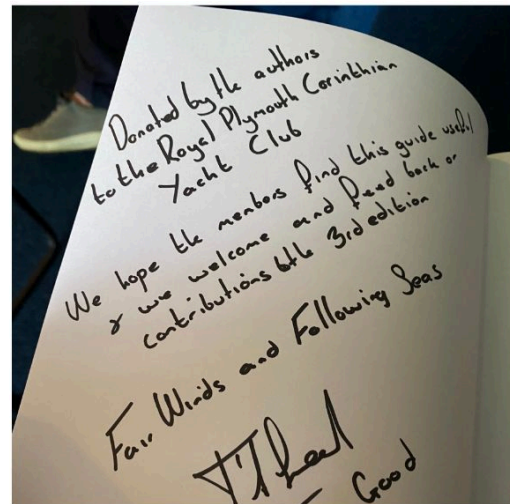 Donated by the authors
to the Royal Plymouth Corinthian
Yacht Club
We hope the members find this guide useful
& we welcome and feed back or
contributions to the 3rd edition
Fair Winds and Following Seas
Good